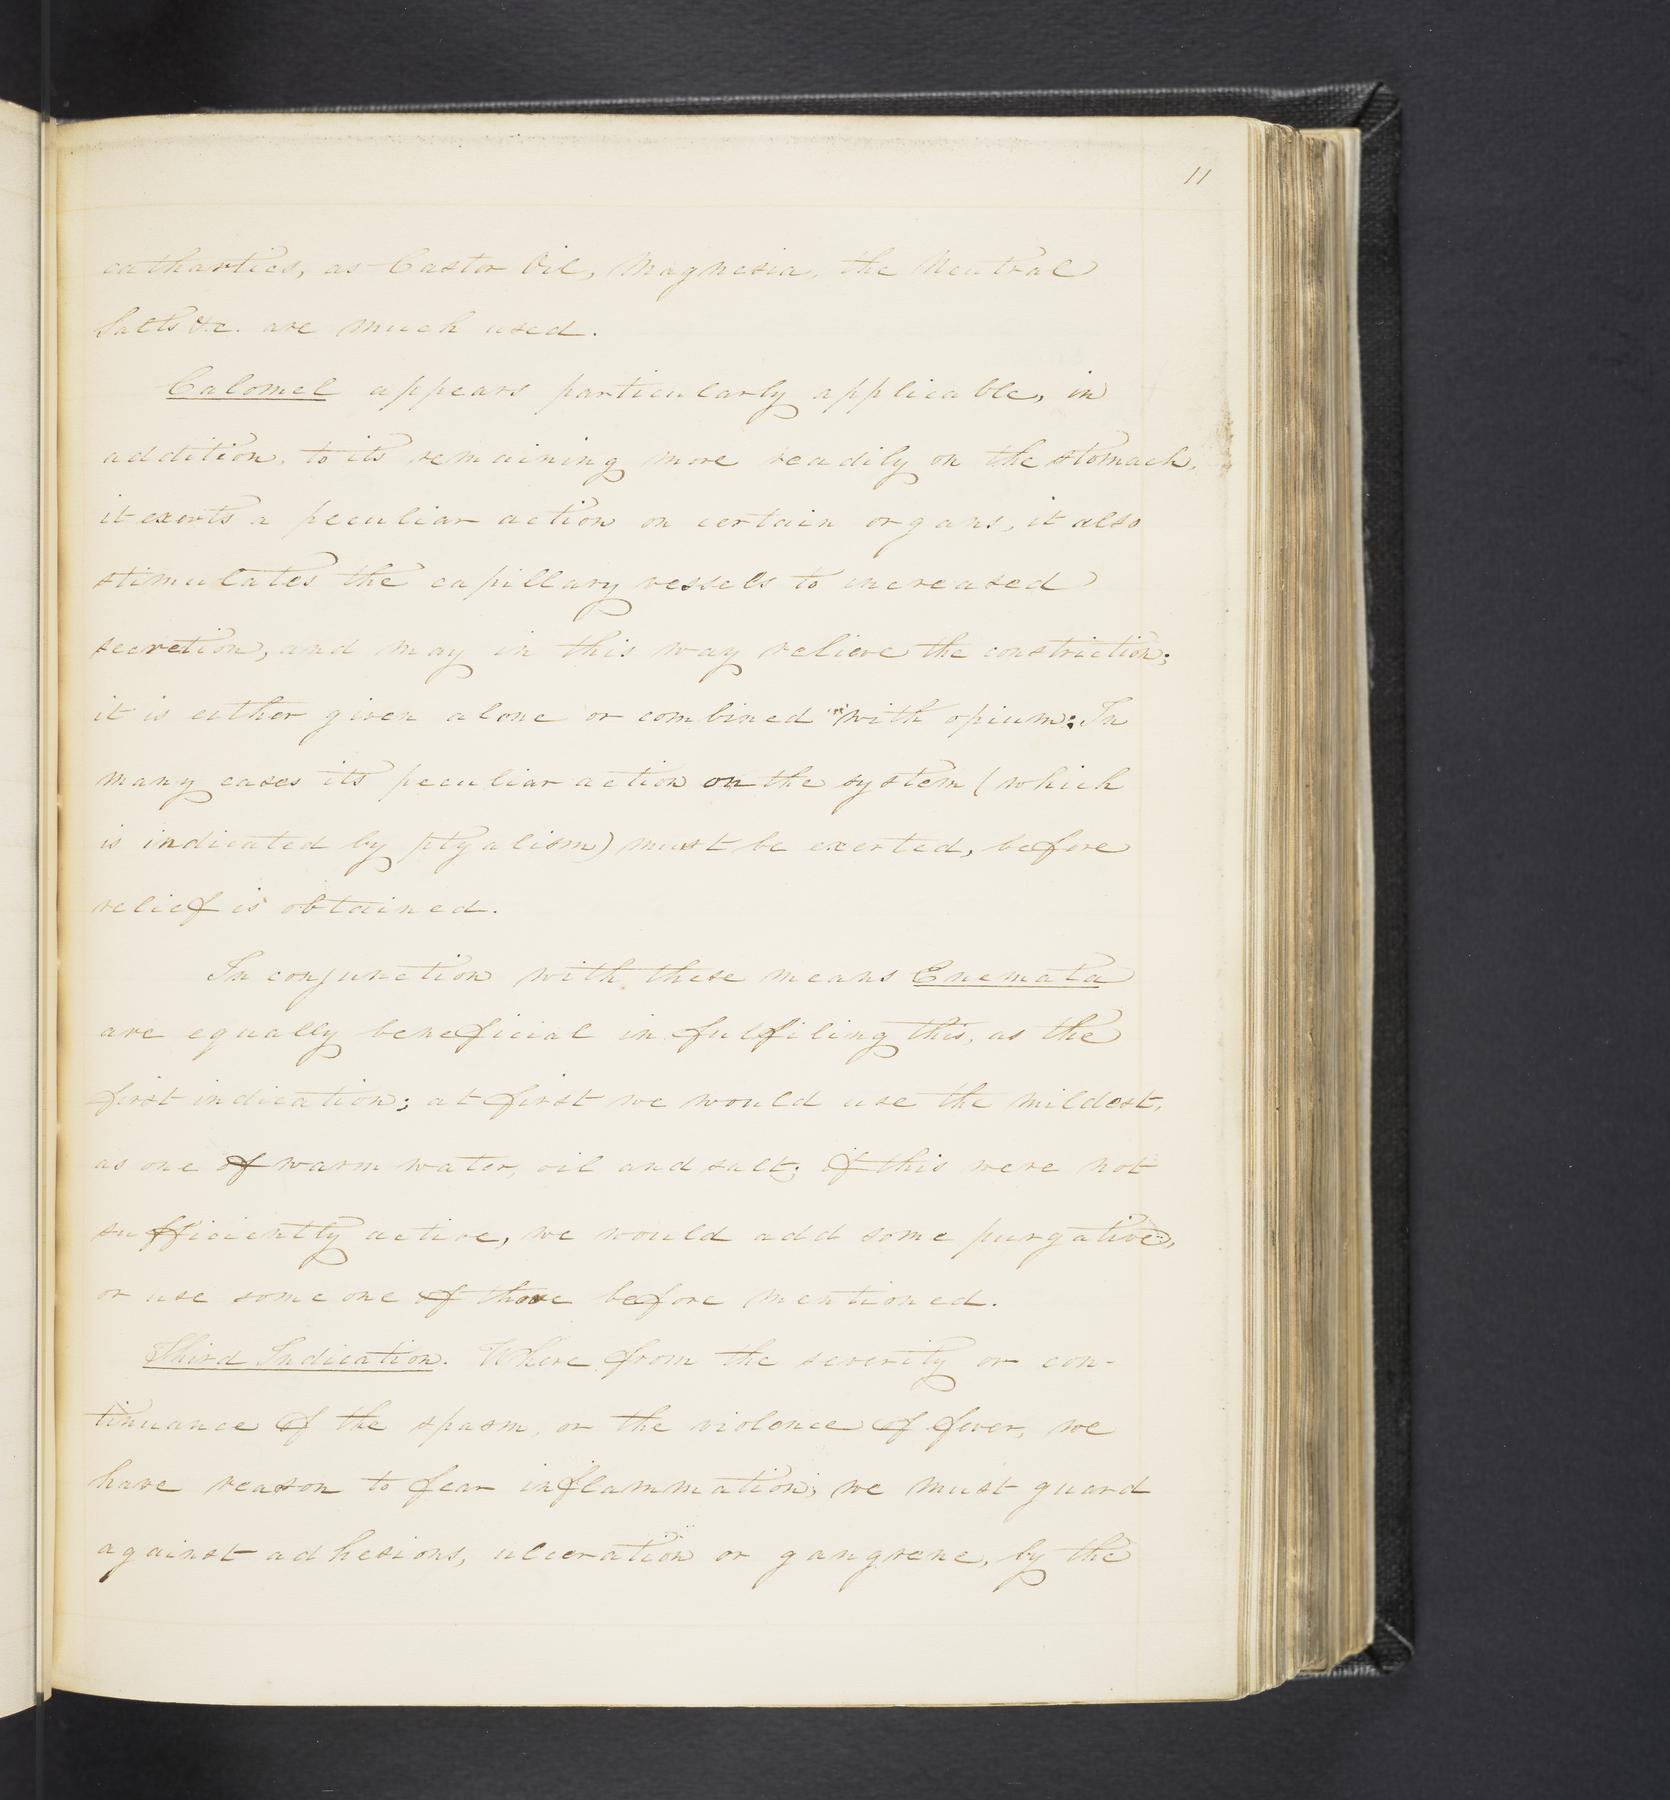 11
cathartics, as Castor Oil, Magnesia, the Neutral
Salts &c. are much used.
Calomel appears particularly applicable, in
addition, to its remaining more readily on the stomach,
it exerts a peculiar action on certain organs, it also
stimulates the capillary vessels to increased
secretion, and may in this way relieve the constriction;
it is either given alone or combined with opium: In
many cases its peculiar action on the system (which
is indicated by ptyalism) must be exerted, before
relief is obtained.
In conjunction with these means Enemata
are equally beneficial in fulfiling this, as the
first indication; at first we would use the mildest,
as one of warm water, oil and salt; if this were not
sufficiently active, we would add some purgative,
or use some one of those before mentioned.
Third Indication. Where from the severity or con-
tinuance of the spasm, or the violence of fever, we
have reason to fear inflammation; we must guard
against adhesions, ulceration or gangrene, by the